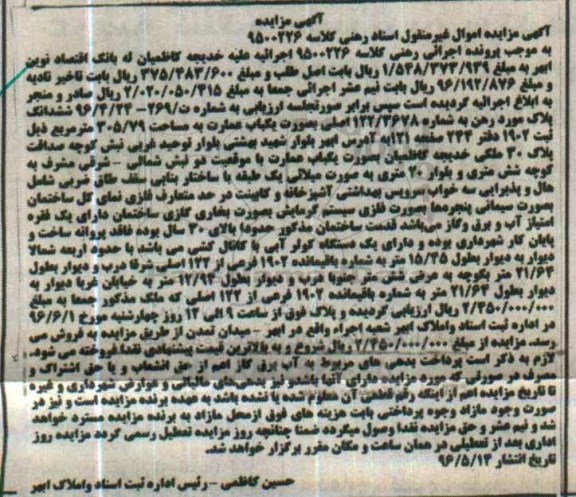 آگهی مزایده
آگهی مزایده اموال غیرمنقول اسناد رهنی کلاسه ۹۵۰۰۲۲۶
به موجب پرونده اجرائی رهنی کلاسه ۹۵۰۰۲۲۶ اجرائیه علیه خدیجه کاظمیان له بانک اقتصاد نوین
ابهر به مبلغ ۱/۵۴۸/۳۷۳/۹۳۹ ریال بابت اصل طلب و مبلغ ۳۷۵/۴۸۳/۶۰۰ ریال بابت تاخیر تادیه
و مبلغ ۹۶/۱۹۲/۸۷۶ ریال بابت نیم عشر اجرائی جمعا به مبلغ ۲/۰۲۰/۰۵۰/۴۱۵ ریال صادر و منجر
به ابلاغ اجرائیه گردیده است سپس برابر صورتجلسه ارزیابی به شماره ت/۲۶۹-۹۶/۴/۲۴ ششدانگ
پلاک مورد رهن به شماره ۱۲۲/۳۶۷۸ اصلی بصورت یکباب عمارت به مساحت ۳۰۵/۷۹ مترمربع ذیل
ثبت ۱۹۰۲ دفتر ۲۴۴ صفحه ۱۲۱ به آدرس ابهر بلوار شهید بهشتی بلوار توحید غربی نبش کوچه صداقت
پلاک ۳۰ ملکی خدیجه کاظمیان بصورت یکباب عمارت با موقعیت دو نبش شمالی - شرقی مشرف به
کوچه شش متری و بلوار ۲۰ متری به صورت میلانی یک طبقه با ساختار بنایی سقف طاق ضربی شامل
هال و پذیرایی سه خواب سرویس بهداشتی آشپزخانه و کابینت در حد متعارف فلزی نمای کل ساختمان
بصورت سیمانی پنجره‌ها بصورت فلزی سیستم گرمایش بصورت بخاری گازی ساختمان دارای یک فقره
امتیاز آب و برق وگاز می‌باشد قدمت ساختمان مذکور حدودا بالای ۳۰ سال بوده فاقد پروانه ساخت و
پایان کار شهرداری بوده و دارای یک دستگاه کولر آبی با کانال کشی می باشد با حدود اربعه شمالا
دیوار به دیوار بطول ۱۵/۴۵ متر به شماره باقیمانده ۱۹۰۲ فرعی از ۱۲۲ اصلی شرقا درب و دیوار بطول
۲۱/۶۴ متر بکوچه به عرض شش متر جنوبا درب و دیوار بطول ۱۲/۹۴ متر به خیابان غربا دیوار به
دیوار بطول ۲۱/۶۴ متر به شماره باقیمانده ۱۹۰۲ فرعی از ۱۲۲ اصلی که ملک مذکور جمعا به مبلغ
۲/۴۵۰/۰۰۰/۰۰۰ ریال ارزیابی گردیده و پلاک فوق از ساعت ۹ الی ۱۲ روز چهارشنبه مورخ ۹۶/۶/۱
در اداره ثبت اسناد واملاک ابهر شعبه اجراء واقع در ابهر - میدان تمدن از طریق مزایده به فروش می
رسد. مزایده از مبلغ ۲/۴۵۰/۰۰۰/۰۰۰ ریال شروع و به بالاترین قیمت پیشنهادی نقدا فروخته می شود.
لازم به ذکر است پرداخت بدهی های مربوط به آب برق گاز اعم از حق انشعاب و یا حق اشتراک و
مصرف در صورتی که مورد مزایده دارای آنها باشد و نیز بدهی‌های مالیاتی و عوارض شهرداری و غیره
تا تاریخ مزایده اعم از اینکه رقم قطعی آن معلوم شده یا نشده باشد به عهده برنده مزایده است و نیز در
صورت وجود مازاد وجوه پرداختی بابت هزینه های فوق ازمحل مازاد به برنده مزایده مسترد خواهد
شد و نیم عشر و حق مزایده نقدا وصول میگردد ضمنا چنانچه روز مزایده تعطیل رسمی گردد مزایده روز
اداری بعد از تعطیلی در همان ساعت و مکان مقرر برگزار خواهد شد.
تاریخ انتشار ۹۶/۵/۱۴
حسین کاظمی - رئیس اداره ثبت اسناد واملاک ابهر